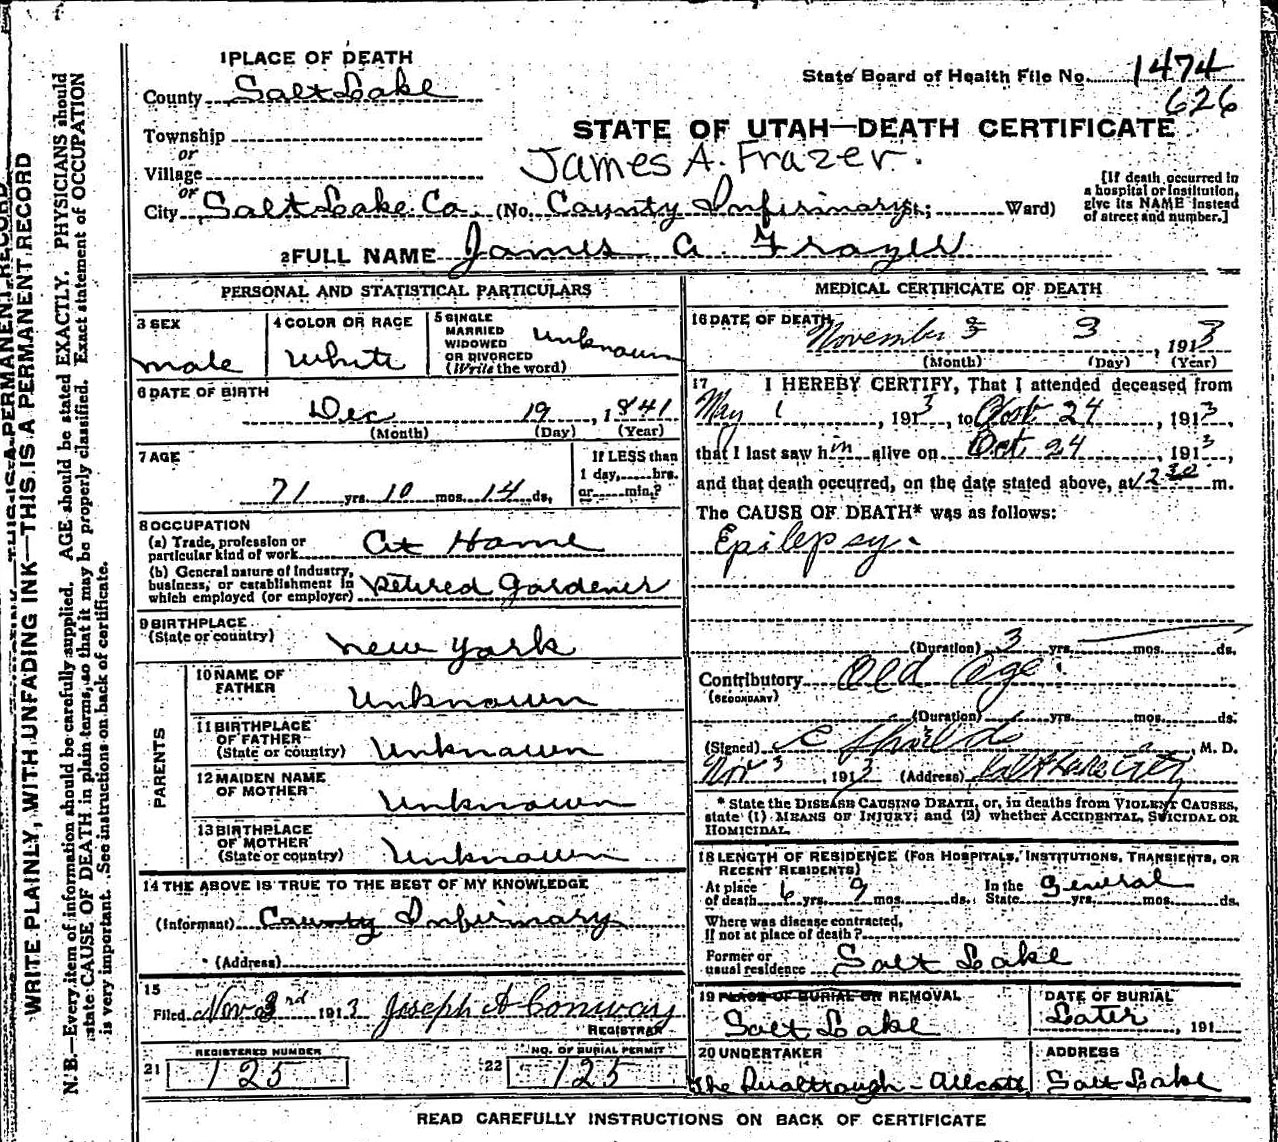 WRITE PLAINLY, WITH UNFADING INK—THIS IS A PERMANENT RECORD
N. B.—Every item of information should be carefully supplied. AGE should be stated EXACTLY. PHYSICIANS should
state CAUSE OF DEATH in plain terms, so that it may be properly classified. Exact statement of OCCUPATION
is very important. See instructions on back of certificate.
1 PLACE OF DEATH
County Salt Lake
Township
or
Village
or
City Salt Lake Co. (No. County Infirmary St.; Ward)
State Board of Health File No. 1474
626
STATE OF UTAH—DEATH CERTIFICATE
James A. Frazer.
[If death occurred in
a hospital or institution,
give its NAME instead
of street and number.]
2 FULL NAME James A. Frazer
PERSONAL AND STATISTICAL PARTICULARS
3 SEX
male
4 COLOR OR RACE
White
5 SINGLE
MARRIED
WIDOWED
OR DIVORCED
(Write the word)
Unknown
6 DATE OF BIRTH
Dec 19, 1841
(Month) (Day) (Year)
7 AGE
71 yrs. 10 mos. 14 ds.
If LESS than
1 day, hrs.
or min.?
8 OCCUPATION
(a) Trade, profession or
particular kind of work At Home
(b) General nature of Industry,
business, or establishment in
which employed (or employer) Retired Gardener
9 BIRTHPLACE
(State or country) New York
PARENTS
10 NAME OF
FATHER
Unknown
11 BIRTHPLACE
OF FATHER
(State or country) Unknown
12 MAIDEN NAME
OF MOTHER
Unknown
13 BIRTHPLACE
OF MOTHER
(State or country) Unknown
14 THE ABOVE IS TRUE TO THE BEST OF MY KNOWLEDGE
(Informant) County Infirmary
(Address)
15
Filed Nov 3rd 1913 Joseph A Conway
REGISTRAR
REGISTERED NUMBER
21 125
NO. OF BURIAL PERMIT
22 125
MEDICAL CERTIFICATE OF DEATH
16 DATE OF DEATH
November 3 3, 1913
(Month) (Day) (Year)
17 I HEREBY CERTIFY, That I attended deceased from
May 1, 1913, to Oct 24, 1913,
that I last saw him alive on Oct. 24, 1913,
and that death occurred, on the date stated above, at 12 30 m.
The CAUSE OF DEATH* was as follows:
Epilepsy.
(Duration) 3 yrs. mos. ds.
Contributory Old Age.
(SECONDARY)
(Duration) yrs. mos. ds.
(Signed) M. D.
Nov 3, 1913 (Address) Salt Lake City
* State the DISEASE CAUSING DEATH, or, in deaths from VIOLENT CAUSES,
state (1) MEANS OF INJURY; and (2) whether ACCIDENTAL, SUICIDAL OR
HOMICIDAL.
18 LENGTH OF RESIDENCE (FOR HOSPITALS, INSTITUTIONS, TRANSIENTS, OR
RECENT RESIDENTS)
At place
of death 6 yrs. 9 mos. ds.
In the
State General yrs. mos. ds.
Where was disease contracted,
If not at place of death?
Former or
usual residence Salt Lake
19 PLACE OF BURIAL OR REMOVAL
Salt Lake
DATE OF BURIAL
Later, 191
20 UNDERTAKER
The Qualtrough-Allcott
ADDRESS
Salt Lake
READ CAREFULLY INSTRUCTIONS ON BACK OF CERTIFICATE